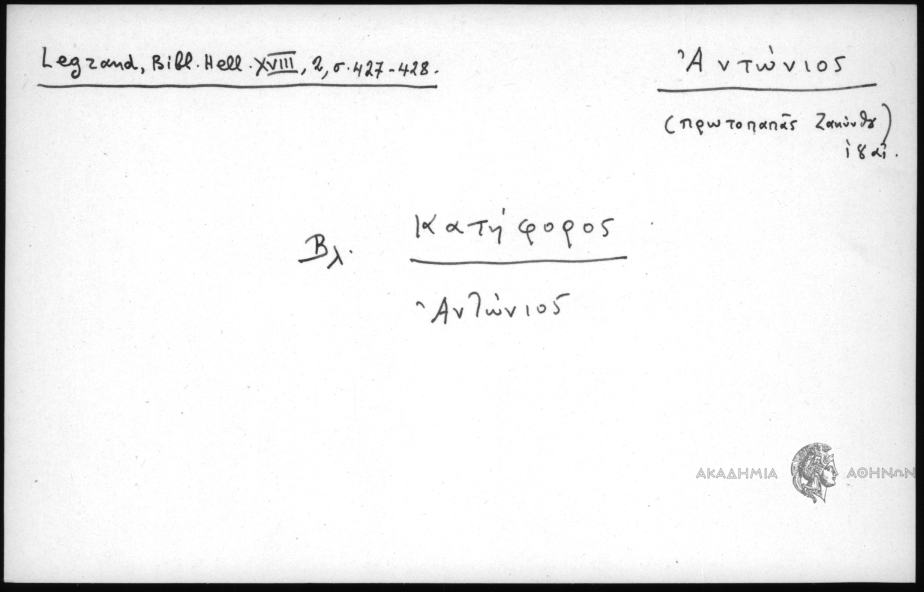 Legrand, Bibl. Hell. XVIII, 2, σ. 427-428.
Ἀντώνιος
(πρωτοπαπᾶς Ζακύνθου)
Βλ. Κατήφορος
Ἀντώνιος
ΑΚΑΔΗΜΙΑ ΑΘΗΝΩΝ